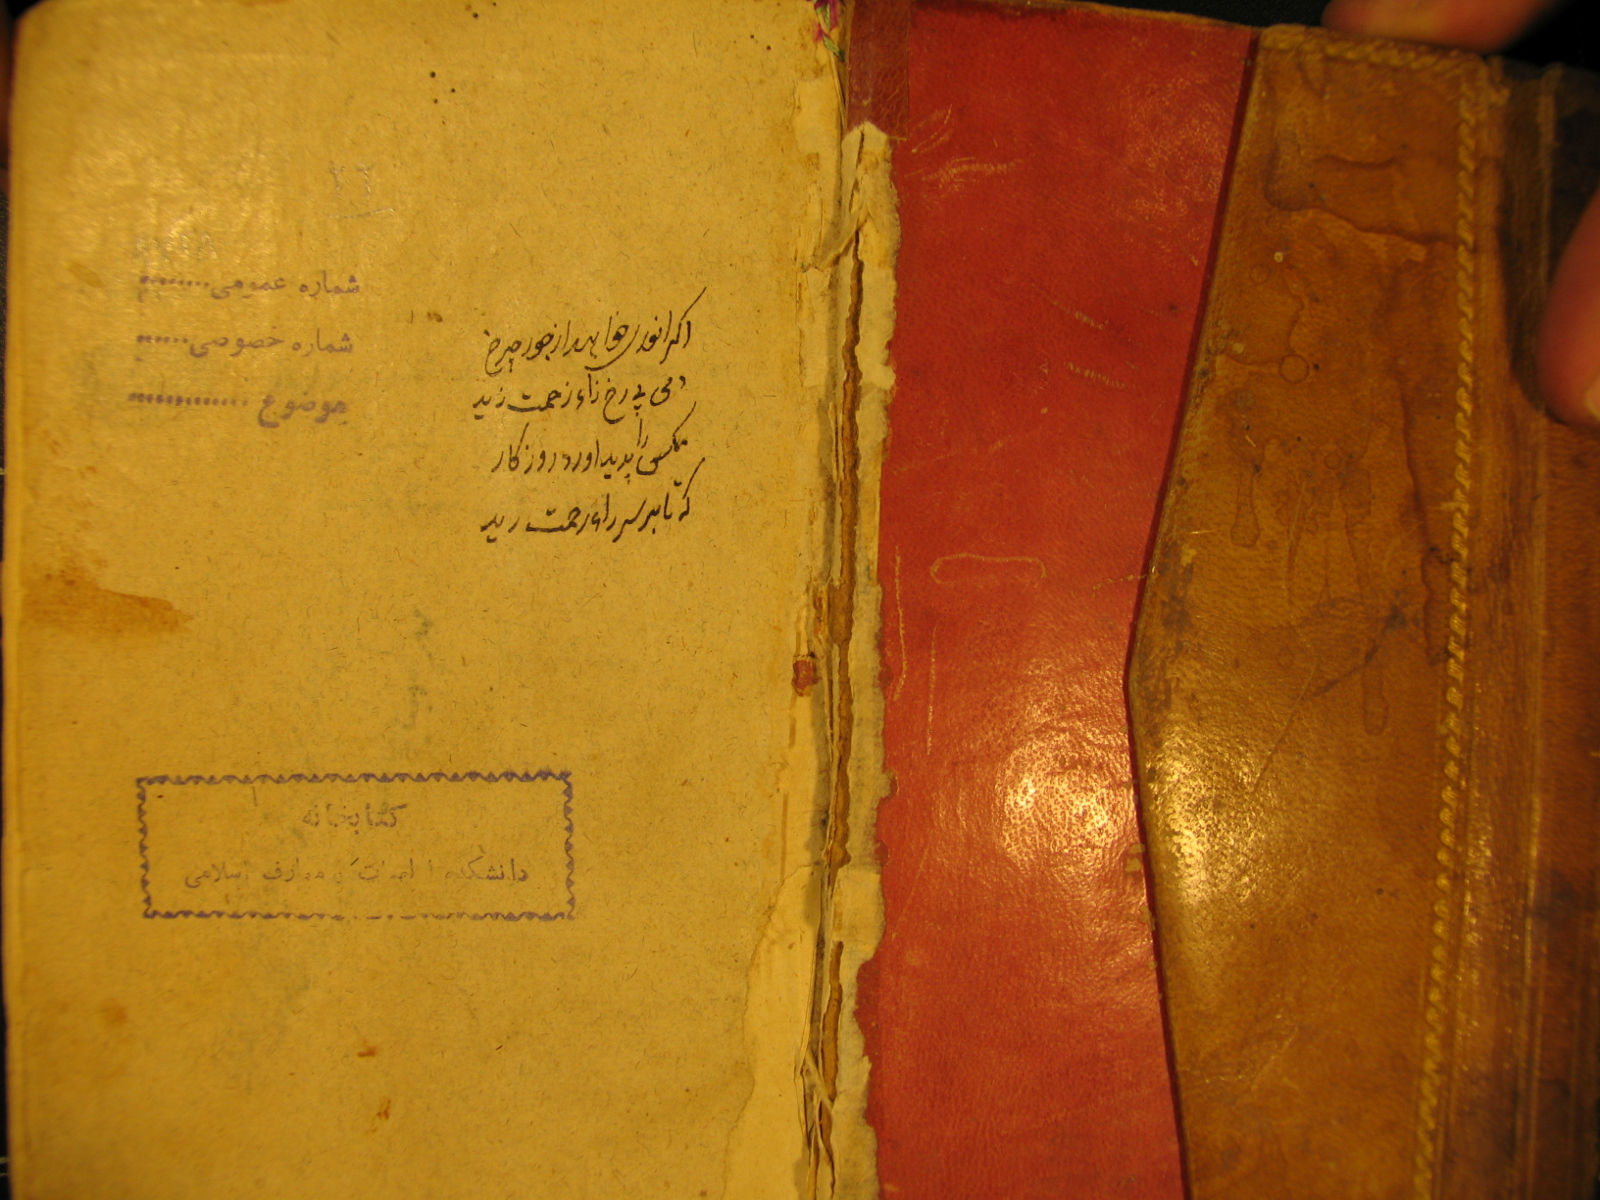 ٢٦
شماره عمومی
شماره خصوصی
موضوع
اکر انوری خواهد از جور چرخ
دمی بی رخ زاء زحمت زید
مکسی را پدید اورد روزکار
که تا بر سر راء رحمت رید
کتابخانه
دانشکده الهیات و معارف اسلامی